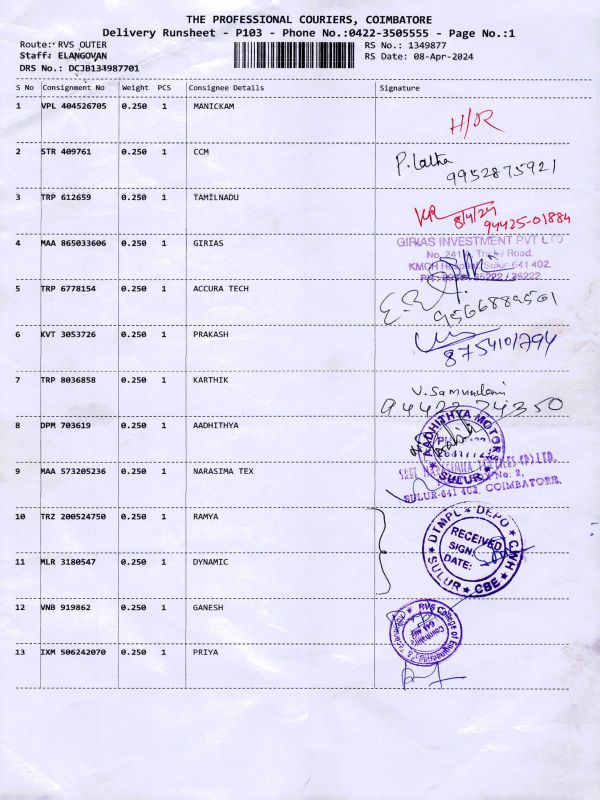 THE PROFESSIONAL COURIERS, COIMBATORE
Delivery Runsheet - P103 - Phone No.:0422-3505555 - Page No.:1
Route: RVS OUTER RS No.: 1349877
Staff: ELANGOVAN RS Date: 08-Apr-2024
DRS No.: DCJB134987701
S No Consignment No Weight PCS Consignee Details Signature
1 VPL 404526705 0.250 1 MANICKAM
H/R
2 STR 409761 0.250 1 CCM
P. Latha
9952875921
3 TRP 612659 0.250 1 TAMILNADU
8/4/24
94425-01884
4 MAA 865033606 0.250 1 GIRIAS
GIRIAS INVESTMENT PVT LTD
Trichy Road.
KMCH Sulur-641 402.
5 TRP 6778154 0.250 1 ACCURA TECH
9566889501
6 KVT 3053726 0.250 1 PRAKASH
8754101794
7 TRP 8036858 0.250 1 KARTHIK
94422 74350
8 DPM 703619 0.250 1 AADHITHYA
AADHITHYA MOTORS
SULUR
9 MAA 573205236 0.250 1 NARASIMA TEX
SULUR-641 402. COIMBATORE.
10 TRZ 200524750 0.250 1 RAMYA
DTMPL DEPO CNH
RECEIVED
SIGN:
DATE:
SULUR CBE
11 MLR 3180547 0.250 1 DYNAMIC
12 VNB 919862 0.250 1 GANESH
RVS College of
13 IXM 506242070 0.250 1 PRIYA